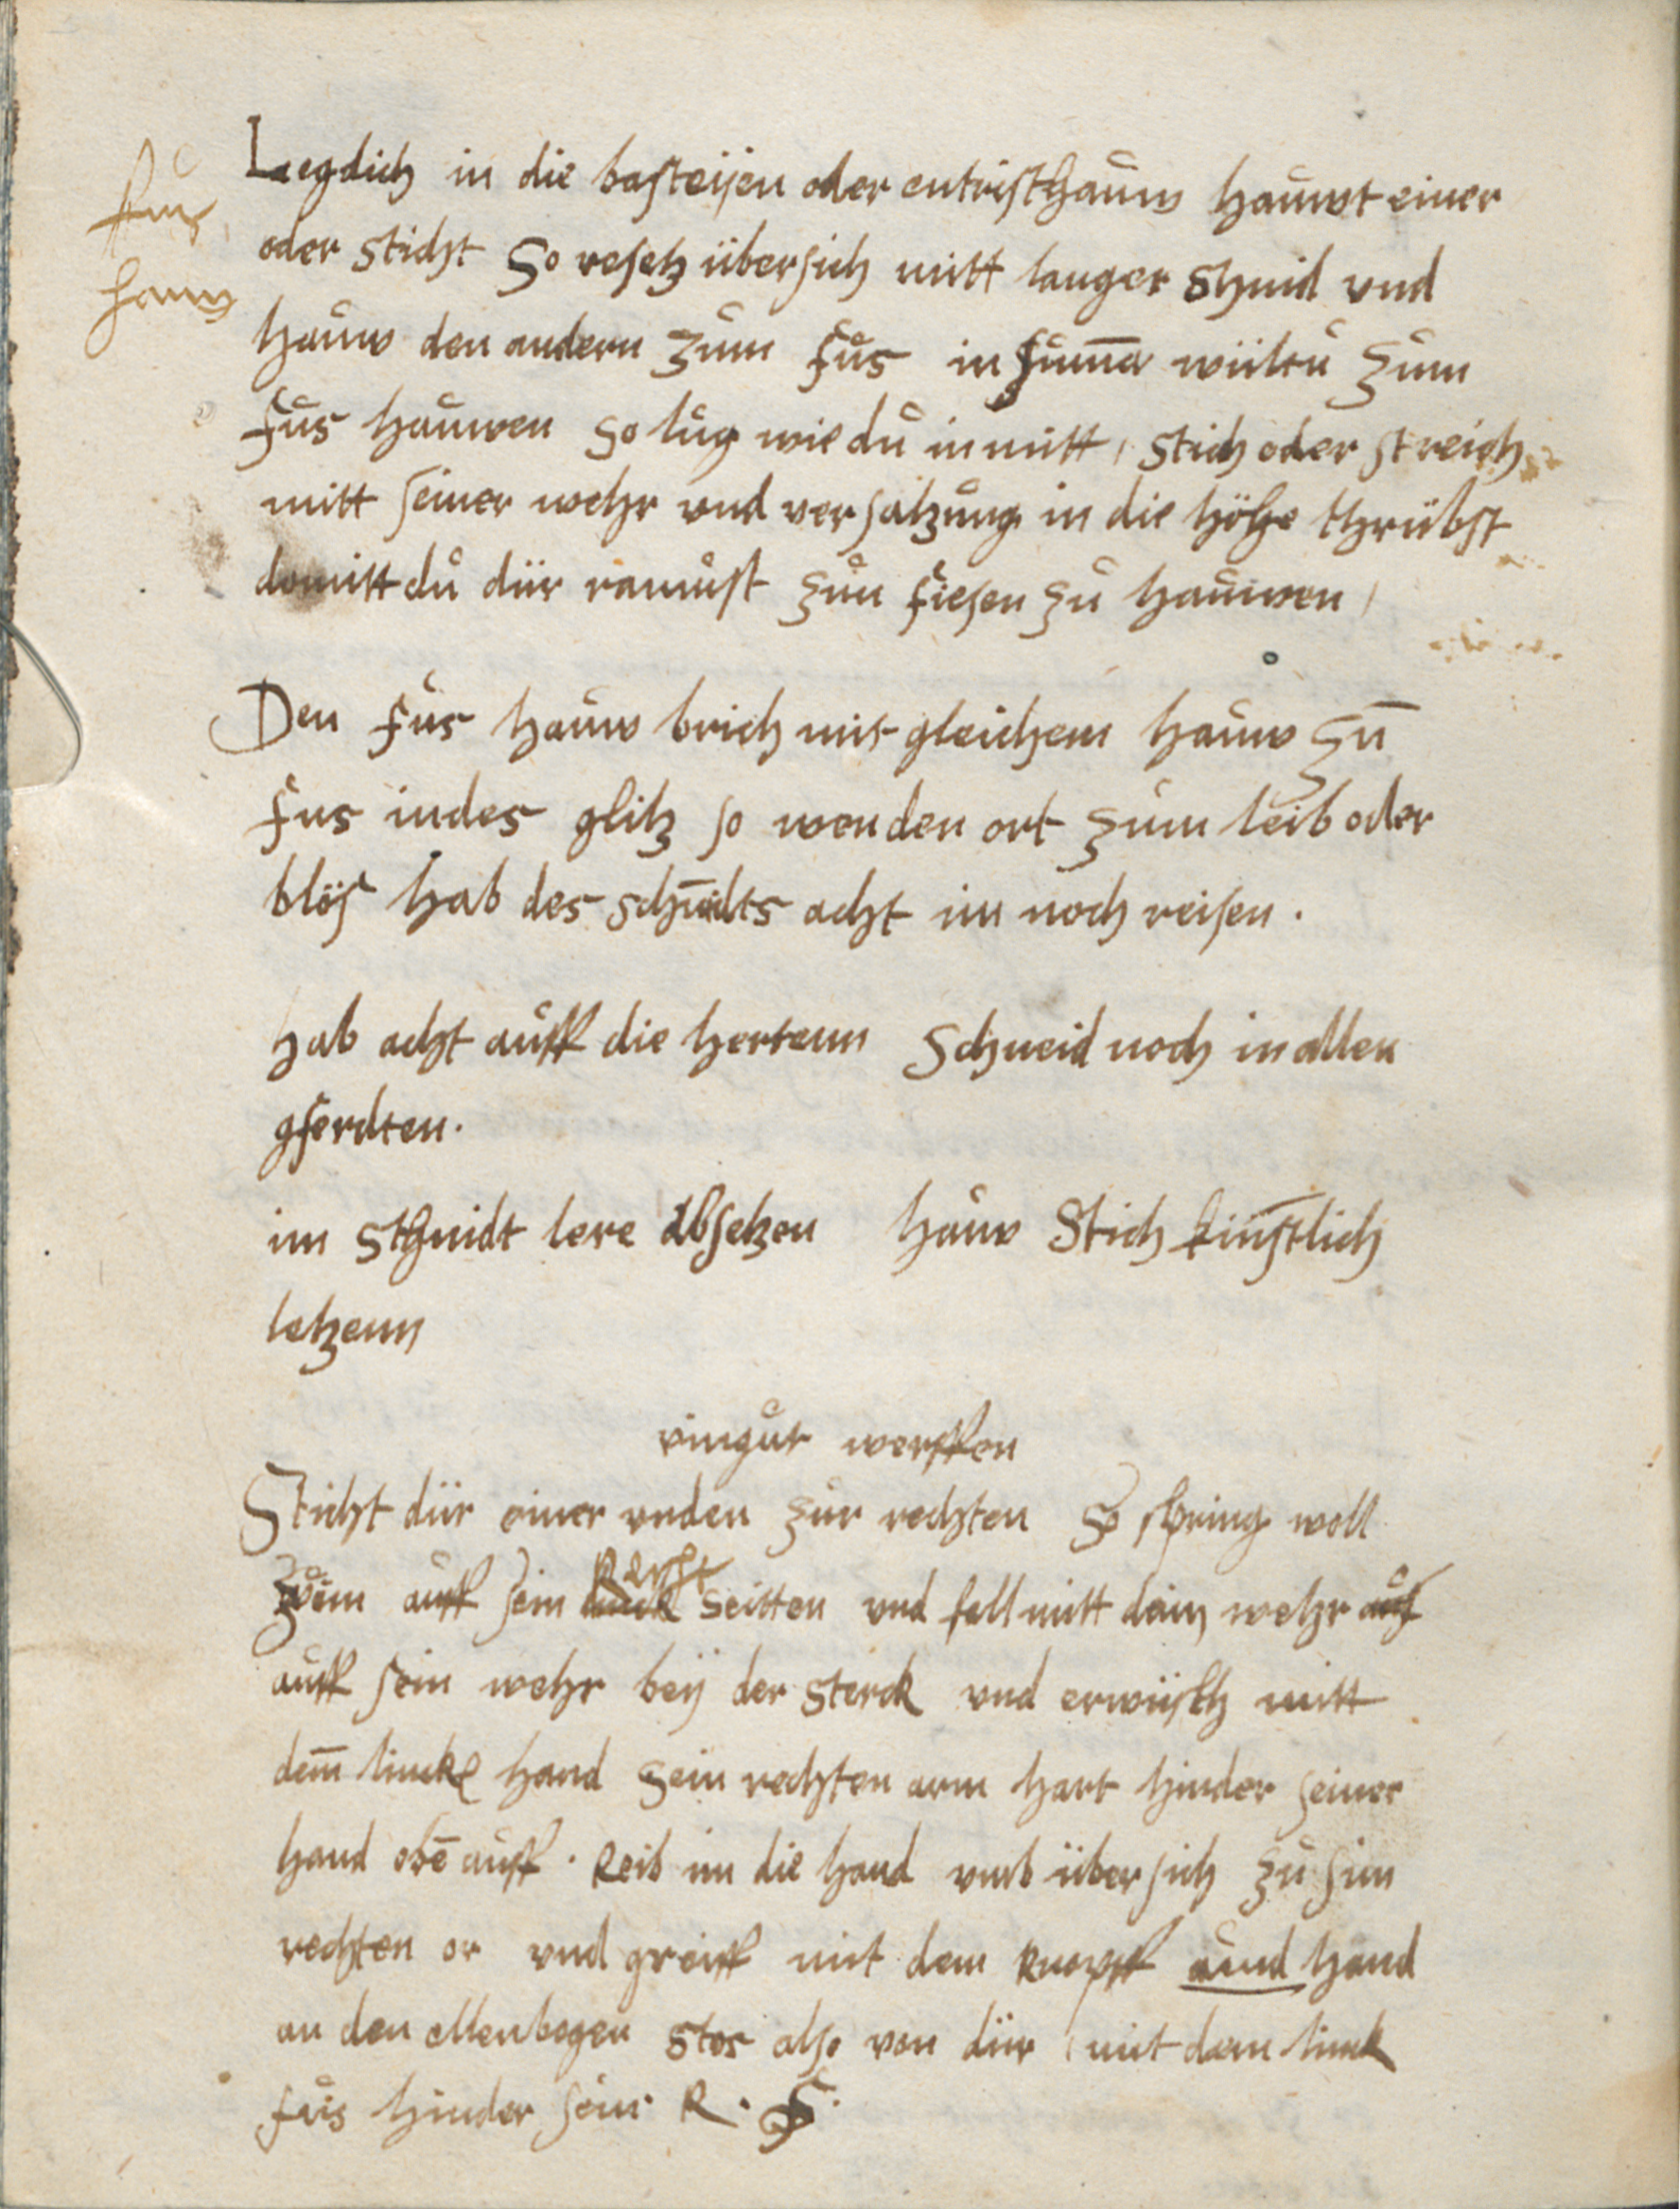 fus
hauw
Legdich in die basteijen oder entristhauw hauwt einer
oder sticht So vesetz übersich mitt langer Shnid vnd
hauw den andern zum fus in sum̄a wiiltu zum
fus hauwen so lug wie du in mitt, stich oder streich
mitt seiner wehr vnd versatzung in die höhe thrübst
domitt du diir raumst zun fiesen zu hauwen,
Den fus hauw brich mit gleichem hauw zu̅
fus indes glitz so wenden ort zum leib oder
blös hab des schnidts acht im noch reisen.
hab acht auff die hertenn Schneid noch in allen
gferdten.
im Schnidt lere absetzen hauw Stich kinstlich
letzenn
vingur werffen
Sticht diir einer vnden zur rechten So spring woll
zu im auff sein linck Recht seitten vnd fall mitt dein wehr auf
auff sein wehr beij der sterck vnd erwiisth mitt
dem̄ lincke hand sein rechten arm hart hinder seiner
hand obē auff. Reib im die hand vmb übersich zu sim
rechten or vnd greiff mit dem knopff aund hand
an den ellenbogen stos also von diir, mit dem linck
fus hinder sein R. F.